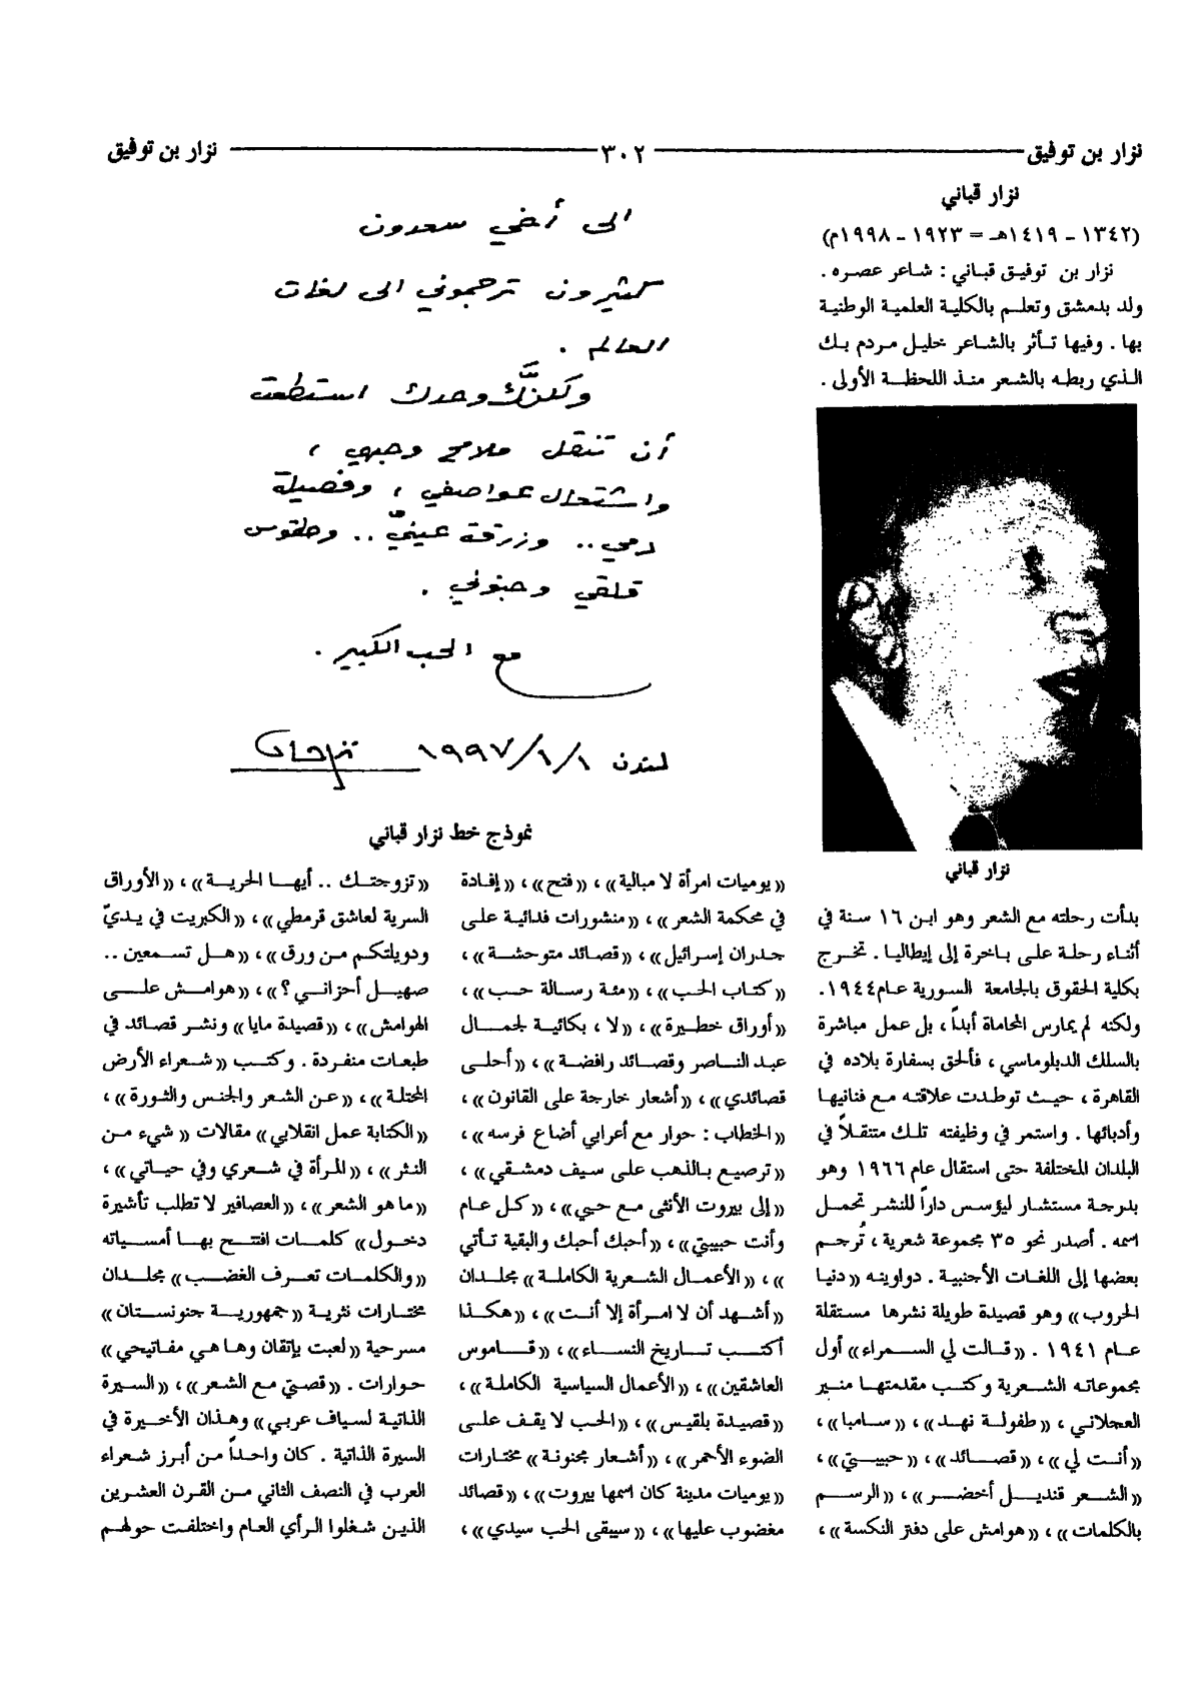 نزار بن توفيق ٣٠٢ نزار بن توفيق
نزار قباني
(١٣٤٢ - ١٤١٩هـ = ١٩٢٣ - ١٩٩٨م)
نزار بن توفيق قباني : شاعر عصره .
ولد بدمشق وتعلم بالكلية العلمية الوطنية
بها . وفيها تأثر بالشاعر خليل مردم بك
الذي ربطه بالشعر منذ اللحظة الأولى .
نزار قباني
بدأت رحلته مع الشعر وهو ابن ١٦ سنة في
أثناء رحلة على باخرة إلى إيطاليا . تخرج
بكلية الحقوق بالجامعة السورية عام ١٩٤٤.
ولكنه لم يمارس المحاماة أبداً ، بل عمل مباشرة
بالسلك الدبلوماسي ، فألحق بسفارة بلاده في
القاهرة ، حيث توطدت علاقته مع فنانيها
وأدبائها . واستمر في وظيفته تلك متنقلاً في
البلدان المختلفة حتى استقال عام ١٩٦٦ وهو
بدرجة مستشار ليؤسس داراً للنشر تحمل
اسمه . أصدر نحو ٣٥ مجموعة شعرية ، تُرجم
بعضها إلى اللغات الأجنبية . دواوينه «دنيا
الحروب» وهو قصيدة طويلة نشرها مستقلة
عام ١٩٤١ . «قالت لي السمراء» أول
مجموعاته الشعرية وكتب مقدمتها منير
العجلاني ، «طفولة نهد» ، «سامبا» ،
«أنت لي» ، «قصائد» ، «حبيبتي» ،
«الشعر قنديل أخضر» ، «الرسم
بالكلمات» ، «هوامش على دفتر النكسة» ،
الى أخي سعدون
كثيرون ترجموني الى لغات
العالم .
ولكنَّك وحدك استطعت
أن تنقل ملامح وجهي ،
واشتعال عواصفي ، وفصيلة
دمي .. وزرقة عينيّ .. وطقوس
قلقي وجنوني .
مع الحب الكبير .
لندن ١/١/١٩٩٧ نزار قباني
نموذج خط نزار قباني
«يوميات امرأة لا مبالية» ، «فتح» ، «إفادة
في محكمة الشعر» ، «منشورات فدائية على
جدران إسرائيل» ، «قصائد متوحشة» ،
«كتاب الحب» ، «مئة رسالة حب» ،
«أوراق خطيرة» ، «لا ، بكائية لجمال
عبد الناصر وقصائد رافضة» ، «أحلى
قصائدي» ، «أشعار خارجة على القانون» ،
«الخطاب : حوار مع أعرابي أضاع فرسه» ،
«ترصيع بالذهب على سيف دمشقي» ،
«إلى بيروت الأنثى مع حبي» ، «كل عام
وأنت حبيبتي» ، «أحبك أحبك والبقية تأتي
» ، «الأعمال الشعرية الكاملة» مجلدان
«أشهد أن لا امرأة إلا أنت» ، «هكذا
أكتب تاريخ النساء» ، «قاموس
العاشقين» ، «الأعمال السياسية الكاملة» ،
«قصيدة بلقيس» ، «الحب لا يقف على
الضوء الأحمر» ، «أشعار مجنونة» مختارات
«يوميات مدينة كان اسمها بيروت» ، «قصائد
مغضوب عليها» ، «سيبقى الحب سيدي» ،
«تزوجتك .. أيها الحرية» ، «الأوراق
السرية لعاشق قرمطي» ، «الكبريت في يديّ
ودويلتكم من ورق» ، «هل تسمعين ..
صهيل أحزاني ؟» ، «هوامش على
الهوامش» ، «قصيدة مايا» ونشر قصائد في
طبعات منفردة . وكتب «شعراء الأرض
المحتلة» ، «عن الشعر والجنس والثورة» ،
«الكتابة عمل انقلابي» مقالات «شيء من
النثر» ، «المرأة في شعري وفي حياتي» ،
«ما هو الشعر» ، «العصافير لا تطلب تأشيرة
دخول» كلمات افتتح بها أمسياته
«والكلمات تعرف الغضب» مجلدان
مختارات نثرية «جمهورية جنونستان»
مسرحية «لعبت بإتقان وها هي مفاتيحي»
حوارات . «قصتي مع الشعر» ، «السيرة
الذاتية لسياف عربي» وهذان الأخيرة في
السيرة الذاتية . كان واحداً من أبرز شعراء
العرب في النصف الثاني من القرن العشرين
الذين شغلوا الرأي العام واختلفت حولهم